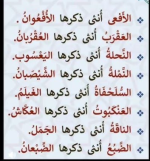 الأفعى أُنثى ذكرها الأُفْعُوانُ.
العقرَبُ أُنثى ذكرها العُقْرُبانُ.
النَّحلةُ أُنثى ذكرها اليَعْسُوب.
النَّملةُ أُنثى ذكرها الشَّيْصَبانُ.
السُّلَحْفاةُ أُنثى ذكرها الغَيلَم.
العَنكَبُوتُ أُنثى ذكرها العُكّاشُ.
الناقةُ أُنثى ذكرها الجَمَلُ.
الضَّبُعُ أُنثى ذكرها الضِّبْعانُ.